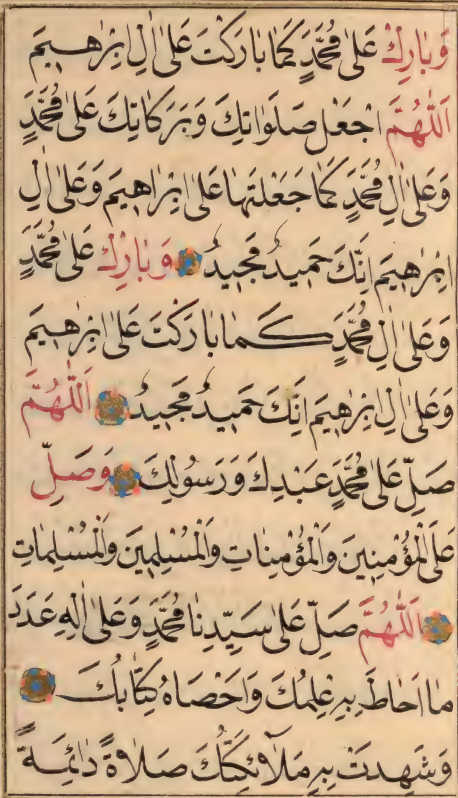 وَبَارِكْ عَلَىٰ مُحَمَّدٍ كَمَا بَارَكْتَ عَلَىٰ اٰلِ اِبْرٰهِيمَ
اَللّٰهُمَّ اجْعَلْ صَلَوَاتِكَ وَبَرَكَاتِكَ عَلَىٰ مُحَمَّدٍ
وَعَلَىٰ اٰلِ مُحَمَّدٍ كَمَا جَعَلْتَهَا عَلَىٰ اِبْرَاهِيمَ وَعَلَىٰ اٰلِ
اِبْرٰهِيمَ اِنَّكَ حَمِيدٌ مَجِيدٌ وَبَارِكْ عَلَىٰ مُحَمَّدٍ
وَعَلَىٰ اٰلِ مُحَمَّدٍ كَمَا بَارَكْتَ عَلَىٰ اِبْرٰهِيمَ
وَعَلَىٰ اٰلِ اِبْرٰهِيمَ اِنَّكَ حَمِيدٌ مَجِيدٌ اَللّٰهُمَّ
صَلِّ عَلَىٰ مُحَمَّدٍ عَبْدِكَ وَرَسُولِكَ وَصَلِّ
عَلَى الْمُؤْمِنِينَ وَالْمُؤْمِنَاتِ وَالْمُسْلِمِينَ وَالْمُسْلِمَاتِ
اَللّٰهُمَّ صَلِّ عَلَىٰ سَيِّدِنَا مُحَمَّدٍ وَعَلَىٰ اٰلِهِ عَدَدَ
مَا اَحَاطَ بِهِ عِلْمُكَ وَاَحْصَاهُ كِتَابُكَ
وَشَهِدَتْ بِهِ مَلَآئِكَتُكَ صَلَاةً دَائِمَةً